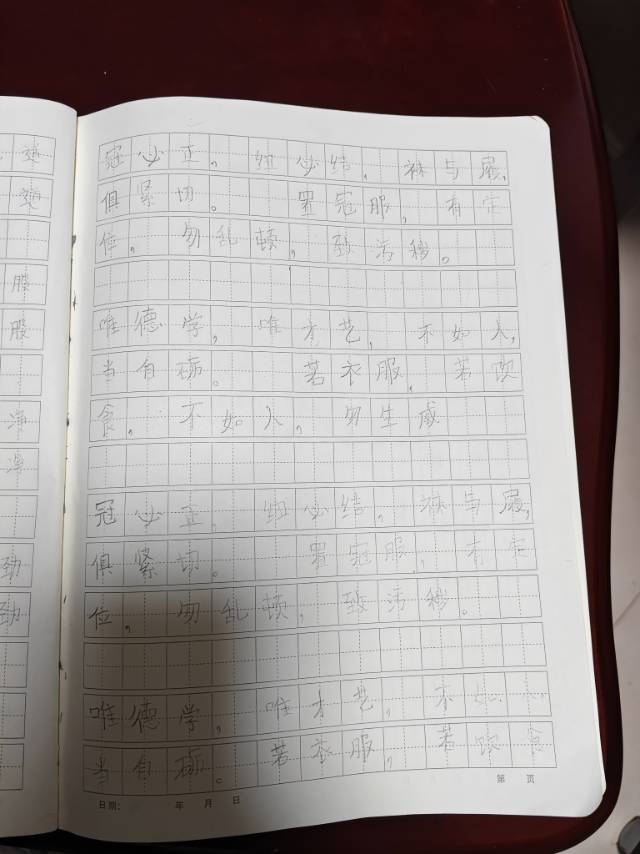 逊
逊
股
股
净
净
劲
劲
冠必正，纽必结，袜与履，
俱紧切。置冠服，有定
位，勿乱顿，致污秽。
唯德学，唯才艺，不如人，
当自砺。若衣服，若饮
食，不如人，勿生戚
冠必正，纽必结，袜与履，
俱紧切。置冠服，有定
位，勿乱顿，致污秽。
唯德学，唯才艺，不如人，
当自砺。若衣服，若饮食
日期： 年 月 日
第 页